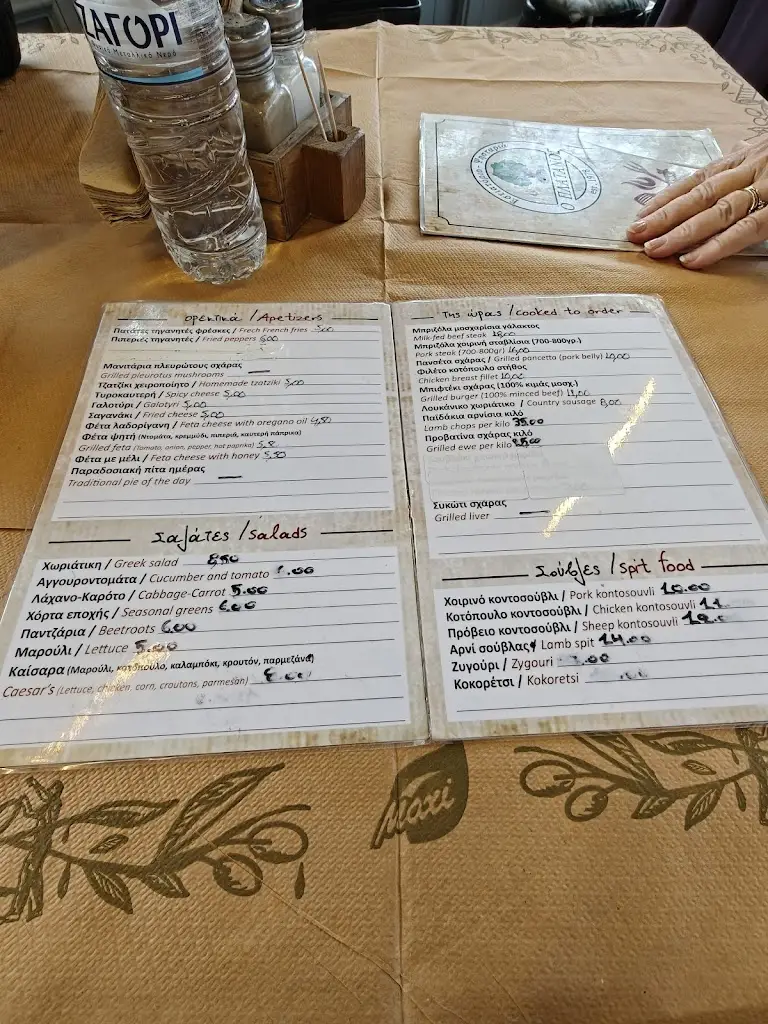 ΖΑΓΟΡΙ
Φυσικό Μεταλλικό Νερό
Εστιατόριο - Ψησταριά
Ο ΠΛΑΤΑΝΟΣ
ορεκτικά / Apetizers
Πατάτες τηγανητές φρέσκες / Frech French fries 5,00
Πιπεριές τηγανητές / Fried peppers 6,00
Μανιτάρια πλευρώτους σχάρας
Grilled pleurotus mushrooms —
Τζατζίκι χειροποίητο / Homemade tzatziki 5,00
Τυροκαυτερή / Spicy cheese 5,00
Γαλοτύρι / Galotyri 5,00
Σαγανάκι / Fried cheese 5,00
Φέτα λαδορίγανη / Feta cheese with oregano oil 4,80
Φέτα ψητή (Ντομάτα, κρεμμύδι, πιπεριά, καυτερή πάπρικα)
Grilled feta (tomato, onion, pepper, hot paprika) 5,80
Φέτα με μέλι / Feta cheese with honey 5,50
Παραδοσιακή πίτα ημέρας
Traditional pie of the day —
Σαλάτες / Salads
Χωριάτικη / Greek salad 8,50
Αγγουροντομάτα / Cucumber and tomato 7.00
Λάχανο-Καρότο / Cabbage-Carrot 5.00
Χόρτα εποχής / Seasonal greens 6.00
Παντζάρια / Beetroots 6.00
Μαρούλι / Lettuce 5.00
Καίσαρα (Μαρούλι, κοτόπουλο, καλαμπόκι, κρουτόν, παρμεζάνα)
Caesar's (Lettuce, chicken, corn, croutons, parmesan) 8.00
Της ώρας / cooked to order
Μπριζόλα μοσχαρίσια γάλακτος
Milk-fed beef steak
Μπριζόλα χοιρινή σταβλίσια (700-800γρ.)
Pork steak (700-800gr)
Πανσέτα σχάρας / Grilled pancetta (pork belly)
Φιλέτο κοτόπουλο στήθος
Chicken breast fillet 10,00
Μπιφτέκι σχάρας (100% κιμάς μοσχ.)
Grilled burger (100% minced beef) 11,00
Λουκάνικο χωριάτικο / Country sausage 8,00
Παϊδάκια αρνίσια κιλό
Lamb chops per kilo 35.00
Προβατίνα σχάρας κιλό
Grilled ewe per kilo
Συκώτι σχαρας
Grilled liver —
Σούβλες / Spit food
Χοιρινό κοντοσούβλι / Pork kontosouvli 10.00
Κοτόπουλο κοντοσούβλι / Chicken kontosouvli 11
Πρόβειο κοντοσούβλι / Sheep kontosouvli
Αρνί σούβλας / Lamb spit 14.00
Ζυγούρι / Zygouri
Κοκορέτσι / Kokoretsi
Maxi